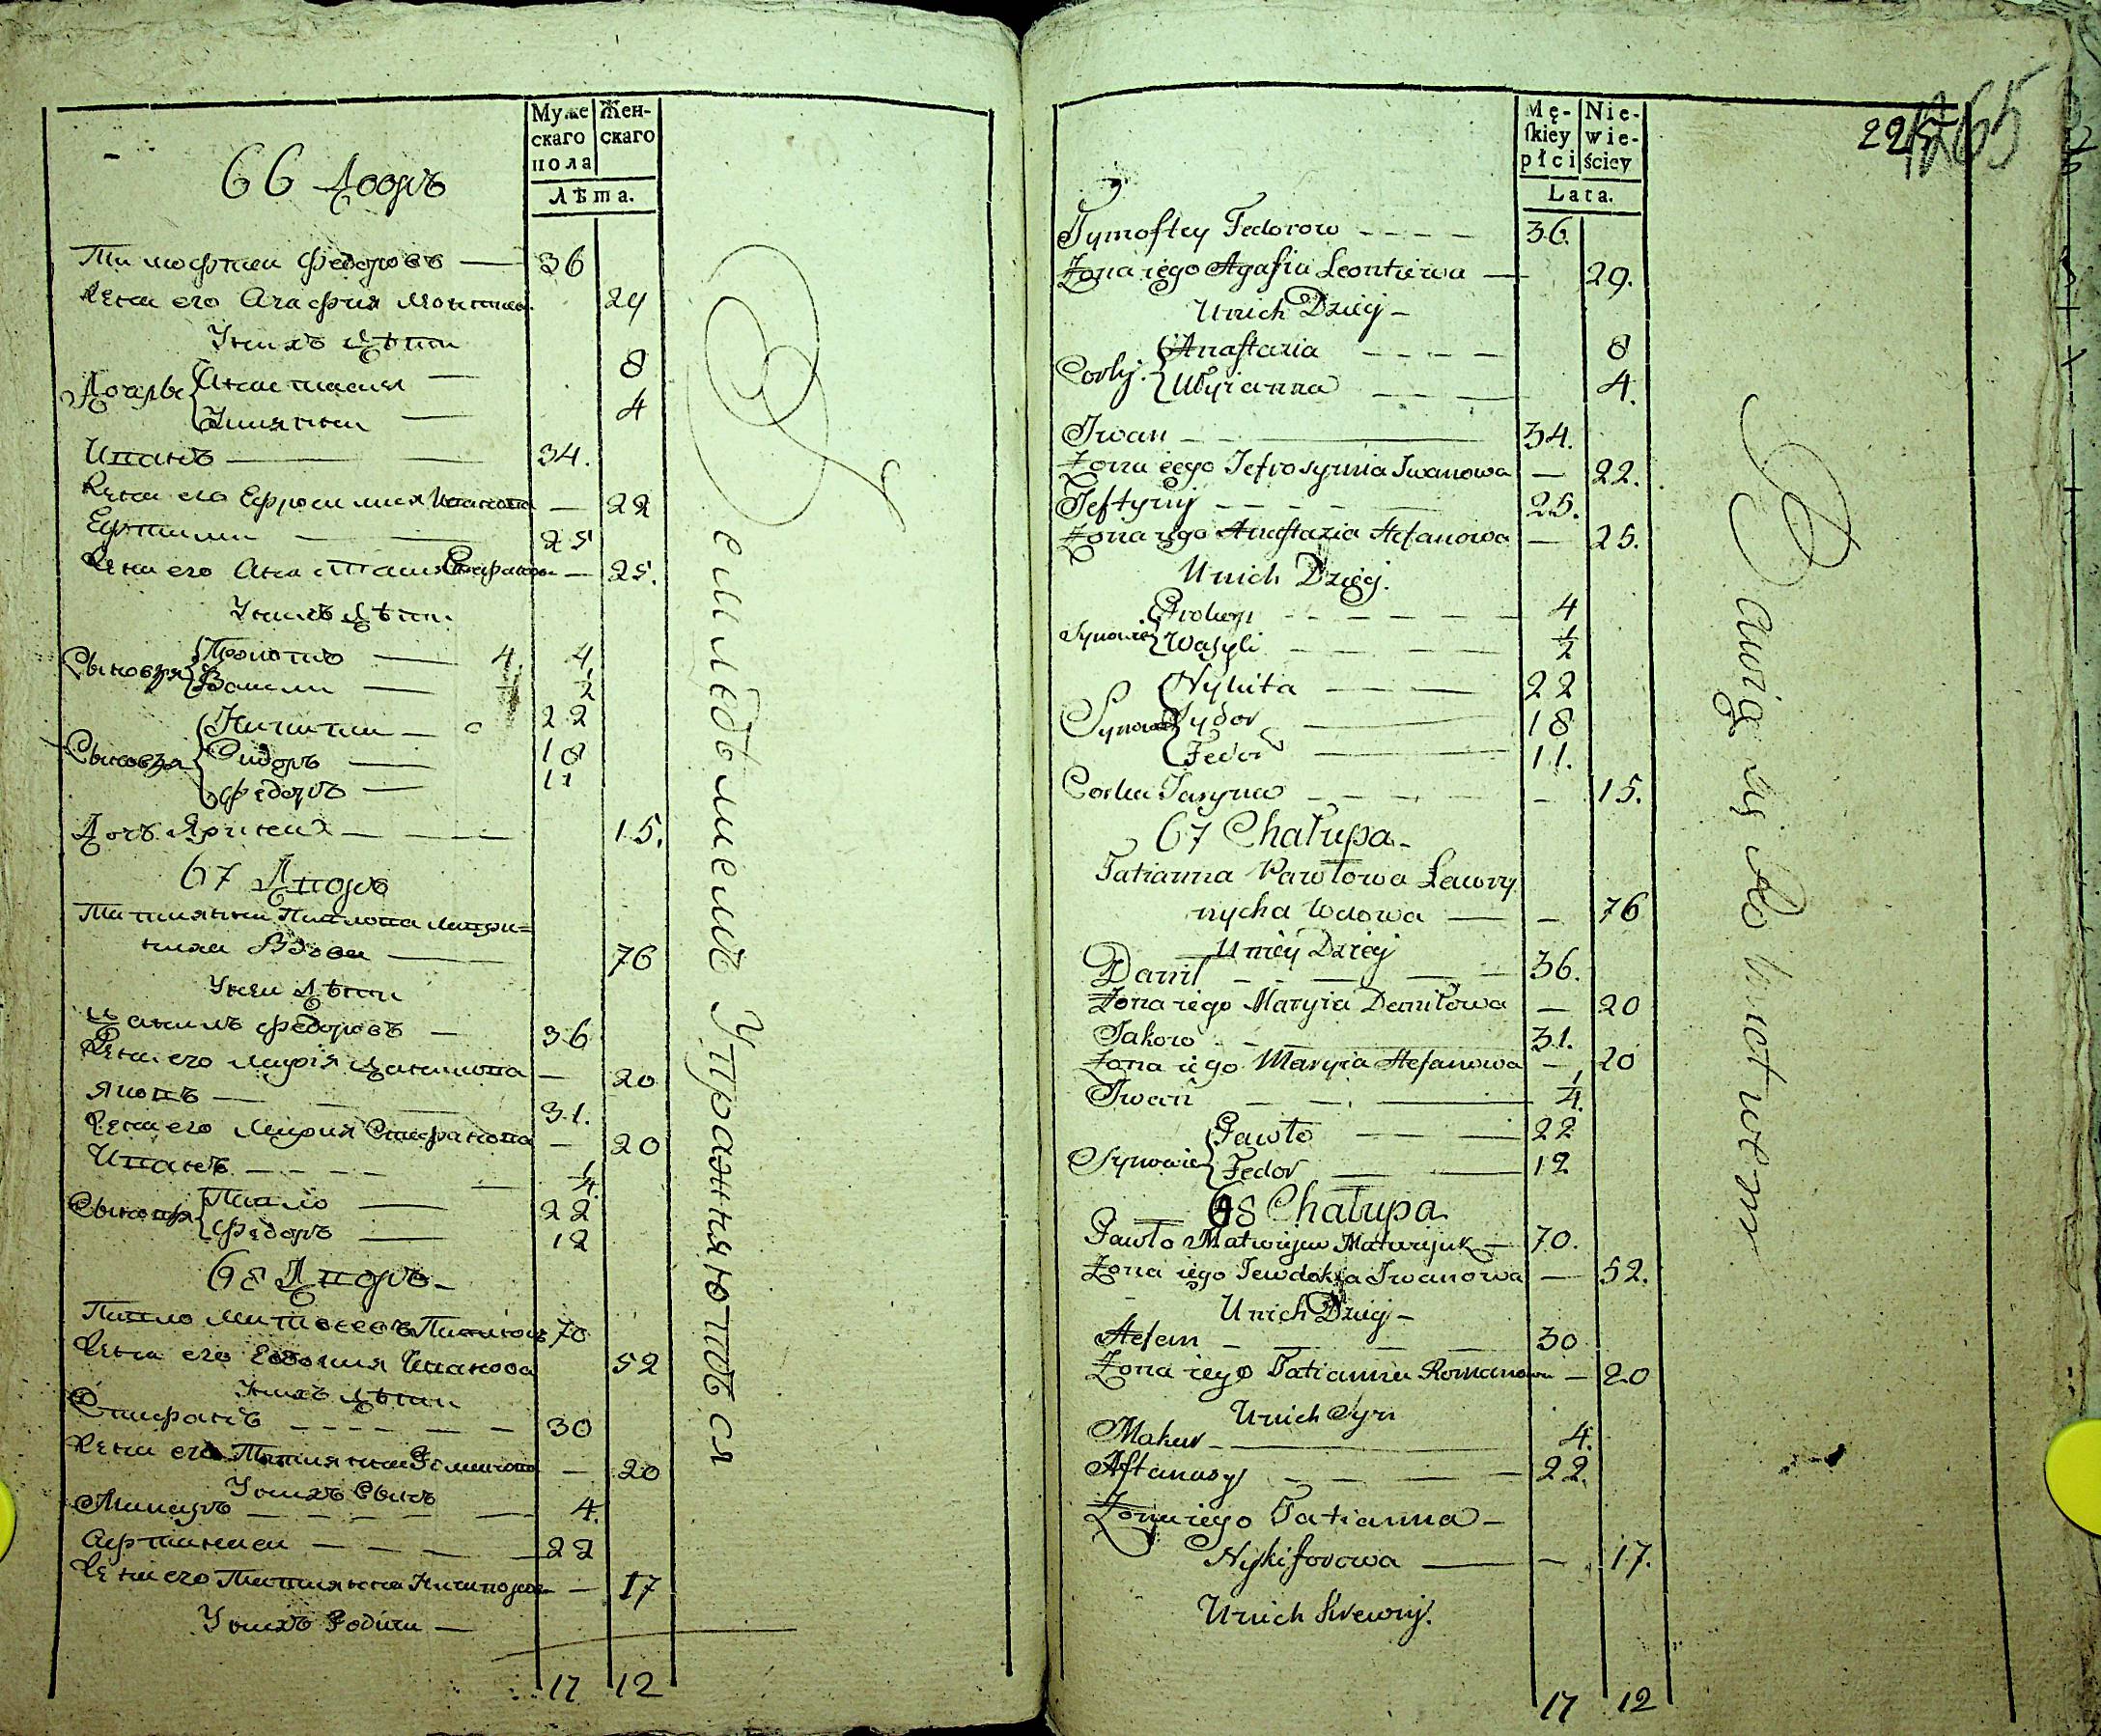 Муже
скаго
пола
Жен-
скаго
Лѣта.
66 Дворъ
Тимофтеи Федоровъ — 36
Жена его Агафия Леонтиева 29
У них Дѣти
Дочерѣ Анастасия — 8
Улиянна — 4
Иванъ — 34.
Жена его Ефросиния Иванова — 22
Ефтими — 25
Жена его Анастасия Стефанова — 25.
У нихъ Дѣти
Сыновя Прокопъ — 4. 4
Васили — 1/2
Сыновя Никита — 22
Сидоръ — 18
Федоръ — 11
Дочъ Ярина — 15.
67 Дворъ
Татиянна Павлова
Вдова — 76
У неи Дѣти
Данилъ Федоровъ — 36
Жена его Мария Данилова — 20
Яковъ — 31.
Жена его Мария Стефанова — 20
Иванъ — 1/4
Сыновя Павло — 22
Федоръ — 12
68 Дворъ
Павло Матвеевъ 70
Жена его Евдокия Иванова 52
У нихъ Дѣти
Стефанъ — 30
Жена его Татиянна Романова — 20
У нихъ Сынъ
Макаръ — 4.
Афтанаси — 22
Жена его Татиянна Никифорова — 17
У нихъ Родичи
17 12
Землѣдѣлиемъ Упражняютъся
225
1265
Mę-
ſkiey
płci
Nie-
wie-
ściey
Lata.
Tymoftey Fedorow — 36.
Zona iego Agafia Leontiewa — 29.
U nich Dzieci
Corky Anastazia — 8
Ulyianna — 4.
Iwan — 34.
Zona iego Iefrosynnia Iwanowa — 22.
Ieftymij — 25.
Zona iego Anastazia Stefanowa — 25.
U nich Dzieci.
Synowie Prokop — 4
Wasyli — 1/2
Synowie Nykita — 22
Sydor — 18
Fedor — 11.
Corka Iaryna — 15.
67 Chałupa.
Tatianna Pawłowa Lawry
nycha Wdowa — 76
U niey Dzieci
Danił — 36.
Zona iego Maryia Daniłowa — 20
Iakow — 31.
Zona iego Maryia Stefanowa — 20
Iwan — 1/4.
Synowie Pawło — 22
Fedor — 12
68 Chałupa
Pawło Matwijew Matwijuk — 70.
Zona iego Iewdokia Iwanowa — 52.
U nich Dzieci
Stefan — 30
Zona iego Tatianna Romanowa — 20
U nich Syn
Makar — 4.
Aftanasy — 22.
Zona iego Tatianna
Nykiforowa — 17.
U nich Krewny.
17 12
Bawią się Rolnictwem